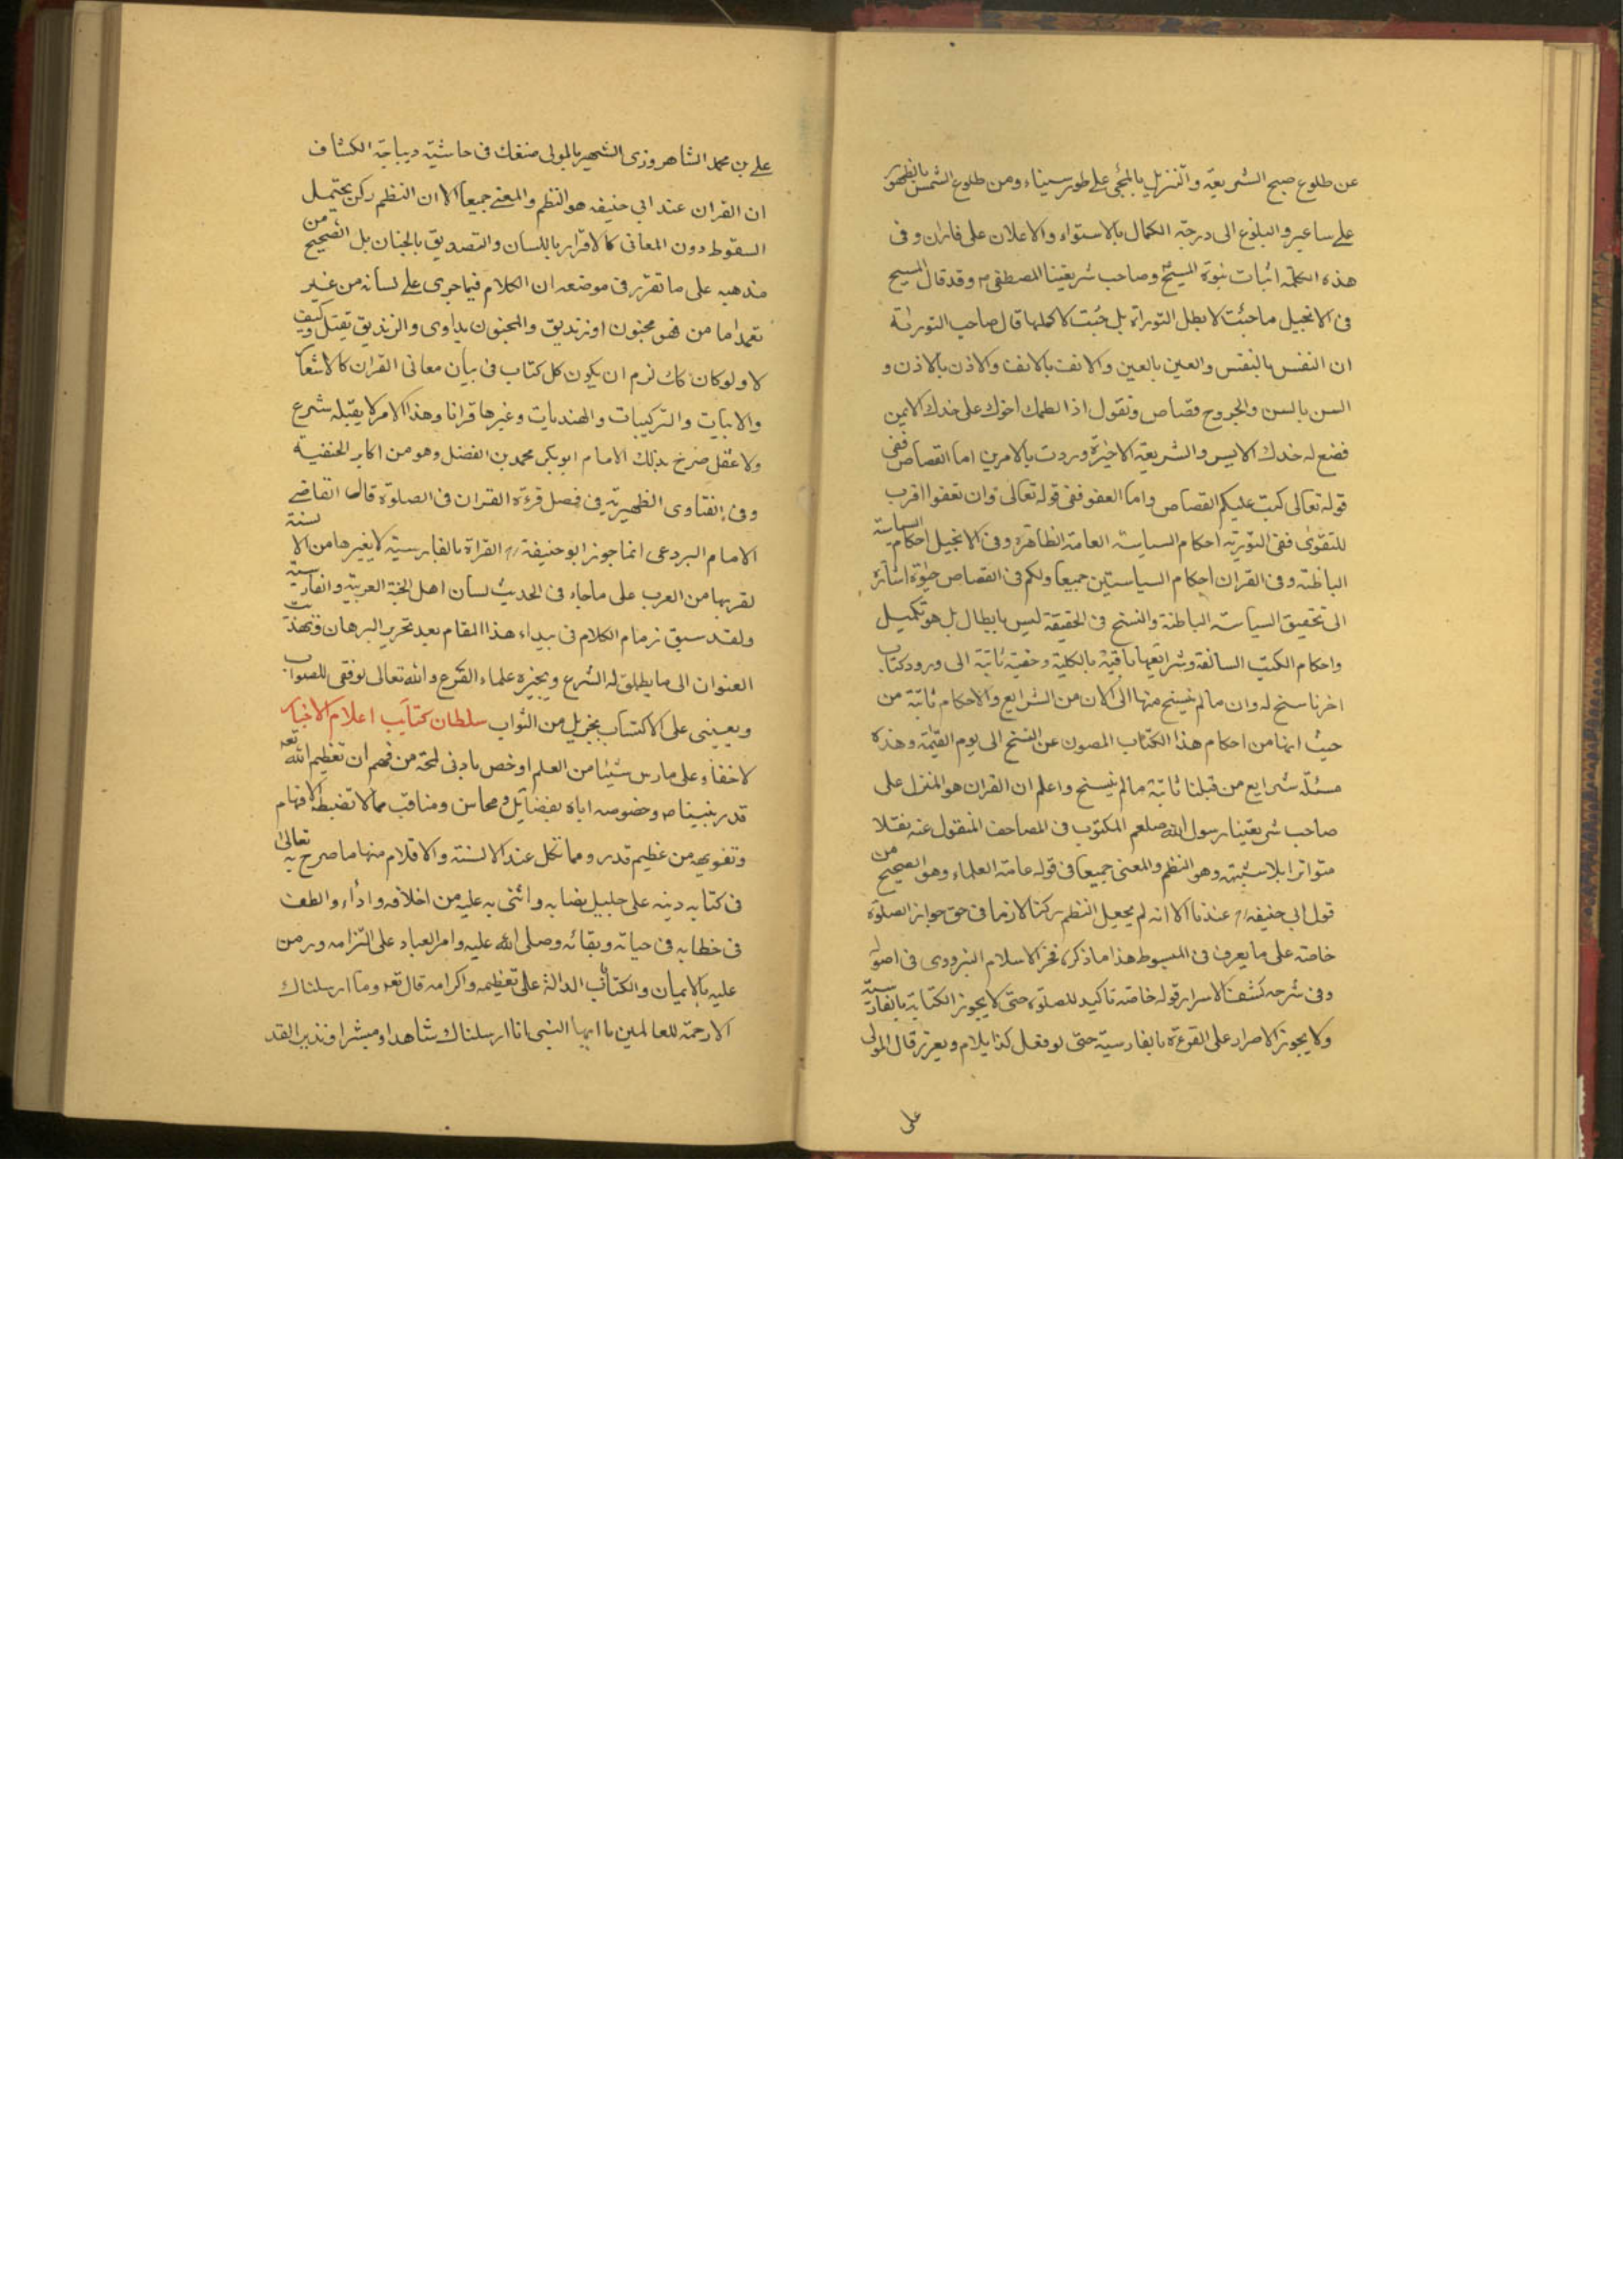 عن طلوع صبح الشريعة والتنزيل بالمجئ على طور سيناء ومن طلوع الشمس بالظهور
على ساعير والبلوغ الى درجة الكمال بالاستواء والاعلان على فاران وفى
هذه الكلمة اثبات نبوة المسيح وصاحب شريعتنا المصطفى وقد قال المسيح
فى الانجيل ما جئت لابطل التوراة بل جئت لاكملها قال صاحب التوراة
ان النفس بالنفس والعين بالعين والانف بالانف والاذن بالاذن و
السن بالسن والجروح قصاص ونقول اذا لطمك اخوك على خدك الايمن
فضع له خدك الايسر والشريعة الاخيرة وردت بالامرين اما القصاص ففى
قوله تعالى كتب عليكم القصاص واما العفو ففى قوله تعالى وان تعفوا اقرب
للتقوى ففى التورية احكام السياسة العامة الظاهرة وفى الانجيل احكام السياسة
الباطنة وفى القران احكام السياستين جميعا ولكم فى القصاص حيوة اشارة
الى تحقيق السياسة الباطنة والنسخ فى الحقيقة ليس بابطال بل هو تكميل
واحكام الكتب السالفة وشرايعها باقية بالكلية وحقية ثابتة الى ورود كتاب
اخر ناسخ له وان ما لم ينسخ منها الى الان من الشرايع والاحكام ثابتة من
حيث انها من احكام هذا الكتاب المصون عن النسخ الى يوم القيمة وهذه
مسئلة شرايع من قبلنا ثابتة ما لم ينسخ واعلم ان القران هو المنزل على
صاحب شريعتنا رسول الله صلعم المكتوب فى المصاحف المنقول عنه نقلا
متواترا بلا شبهة وهو النظم والمعنى جميعا فى قول عامة العلماء وهو الصحيح من
قول ابى حنيفة عندنا الا انه لم يجعل النظم ركنا لازما فى حق جواز الصلوة
خاصة على ما يعرف فى المبسوط هذا ما ذكره فخر الاسلام البزدوى فى اصوله
وفى شرحه كشف الاسرار قوله خاصة تاكيد للصلوة حتى لا يجوز الكتابة بالفارسية
ولا يجوز الاصرار على القرءة بالفارسية حتى لو فعل كذا يلام ويعزر قال المولى
على
على بن محمد الشاهرودى الشهير بالمولى مصنفك فى حاشية ديباجة الكشاف
ان القران عند ابى حنيفه هو النظم والمعنى جميعا الا ان النظم ركن يحتمل
السقوط دون المعانى كالاقرار باللسان والتصديق بالجنان بل الصحيح من
مذهبه على ما تقرر فى موضعه ان الكلام فيما جرى على لسانه من غير
تعمد اما من فهو مجنون او زنديق والمجنون يداوى والزنديق يقتل وكيف
لا ولو كان كك لزم ان يكون كل كتاب فى بيان معانى القران كالاشعا
والابيات والتركيبات والهنديات وغيرها قرانا وهذا الامر لا يقبله شرع
ولا عقل صرح بذلك الامام ابو بكر محمد بن الفضل وهو من اكابر الحنفية
وفى الفتاوى الظهيرية فى فصل قرءة القران فى الصلوة قال القاضى
الامام البردعى انما جوز ابو حنيفة القراة بالفارسية لا بغيرها من الالسنة
لقربها من العرب على ما جاء فى الحديث لسان اهل الجنة العربية والفارسية
ولقد سبق زمام الكلام فى بيداء هذا المقام بعد تحرير البرهان وتهذيب
العنوان الى ما يطلق له الشرع ويجيزه علماء الفرع والله تعالى يوفقى للصواب
ويعيننى على الاكتساب بجزيل من الثواب سلطان كتايب اعلام الاخيار
لا خفاء على مارس شيئا من العلم او خص بادنى لمحة من فهم ان تعظيم الله تعه
قدر نبينا ص وخصوصه اياه بفضايل ومحاسن ومناقب مما لا تضبطه الافهام
وتفويهه من عظيم قدره مما تكل عند الالسنة والاقلام منها ما صرح به تعالى
فى كتابه دينه على جليل نصابه واثنى به عليه من اخلاقه واداء والطف
فى خطابه فى حياته وبقائه وصلى الله عليه وامر العباد على التزامه ورمن
عليه بالايمان والكتاب الدالة على تعظيمه واكرامه قال تعه وما ارسلناك
الا رحمة للعالمين يا ايها النبى انا ارسلناك شاهدا ومبشرا ونذيرا لقد